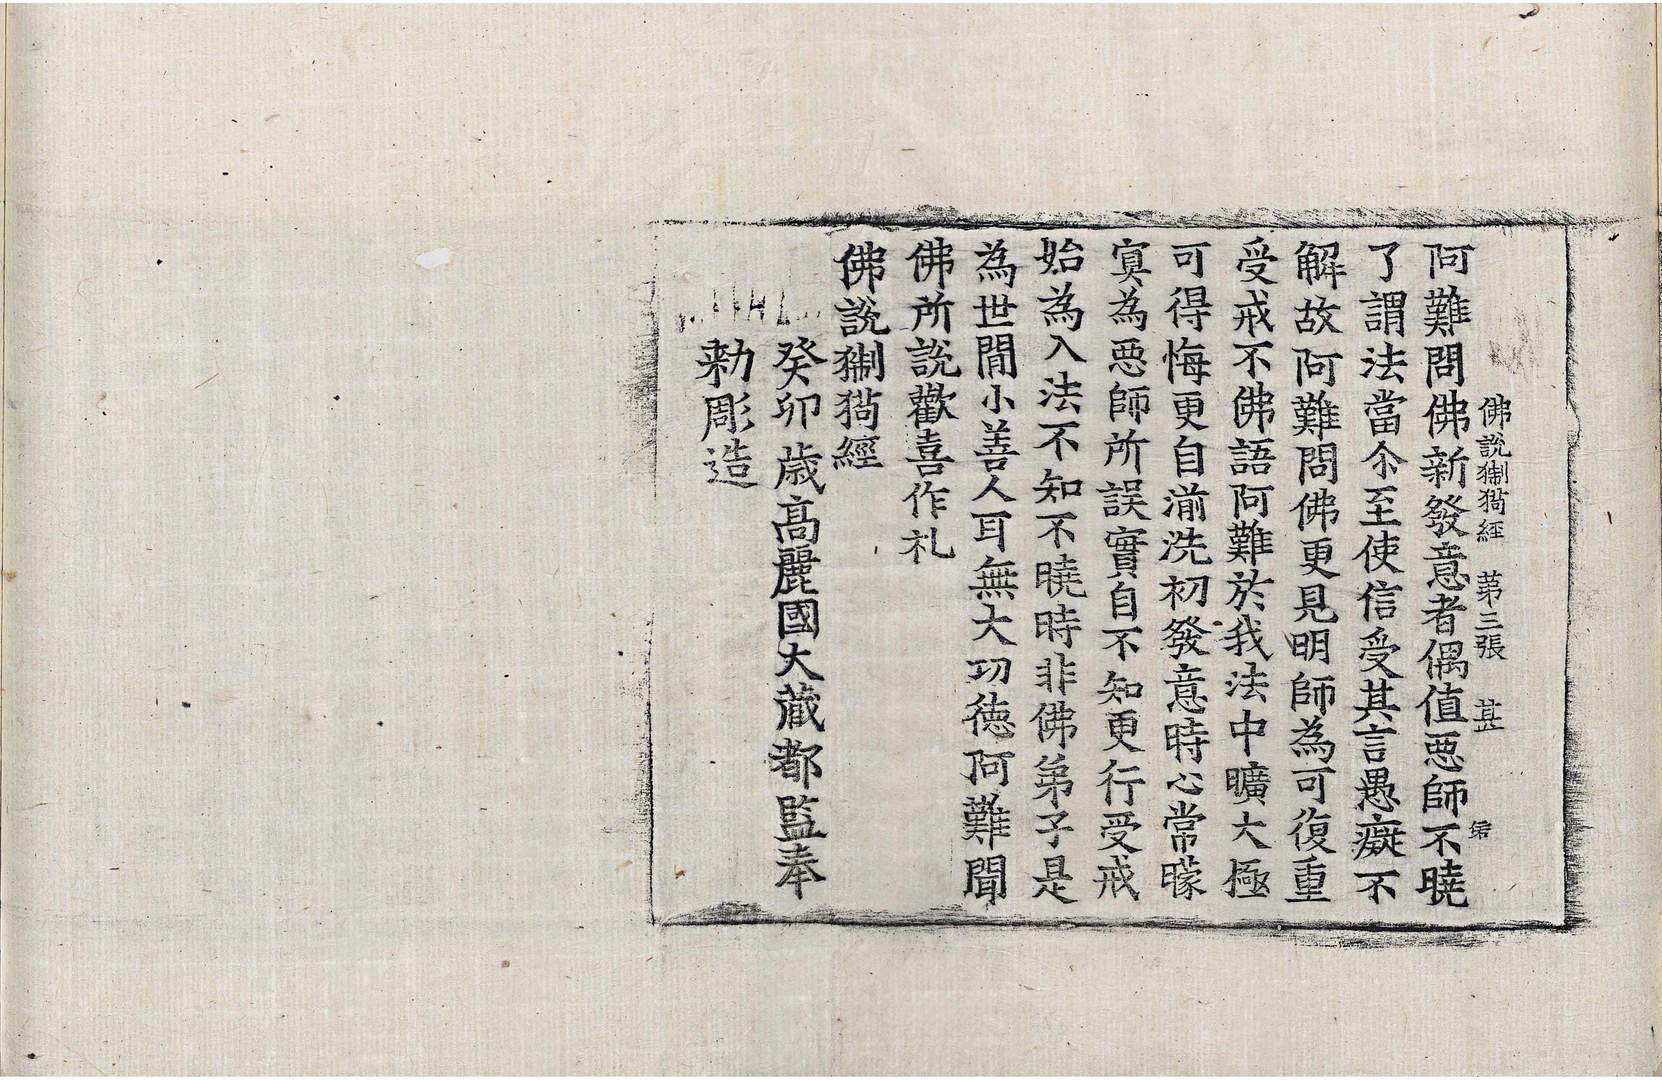 佛說猘狗經　第三張　甚
阿難問佛新發意者偶值惡師不曉
了謂法當尒至使信受其言愚癡不
解故阿難問佛更見明師為可復重
受戒不佛語阿難於我法中曠大極
可得悔更自湔洗初發意時心常矇
冥為惡師所誤實自不知更行受戒
始為入法不知不曉時非佛弟子是
為世間小善人耳無大功德阿難聞
佛所說歡喜作礼
佛說猘狗經
癸卯歲高麗國大藏都監奉
勑彫造